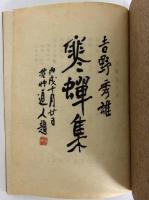 吉野秀雄
寒蟬集
丙戌十月廿日
艸道人題